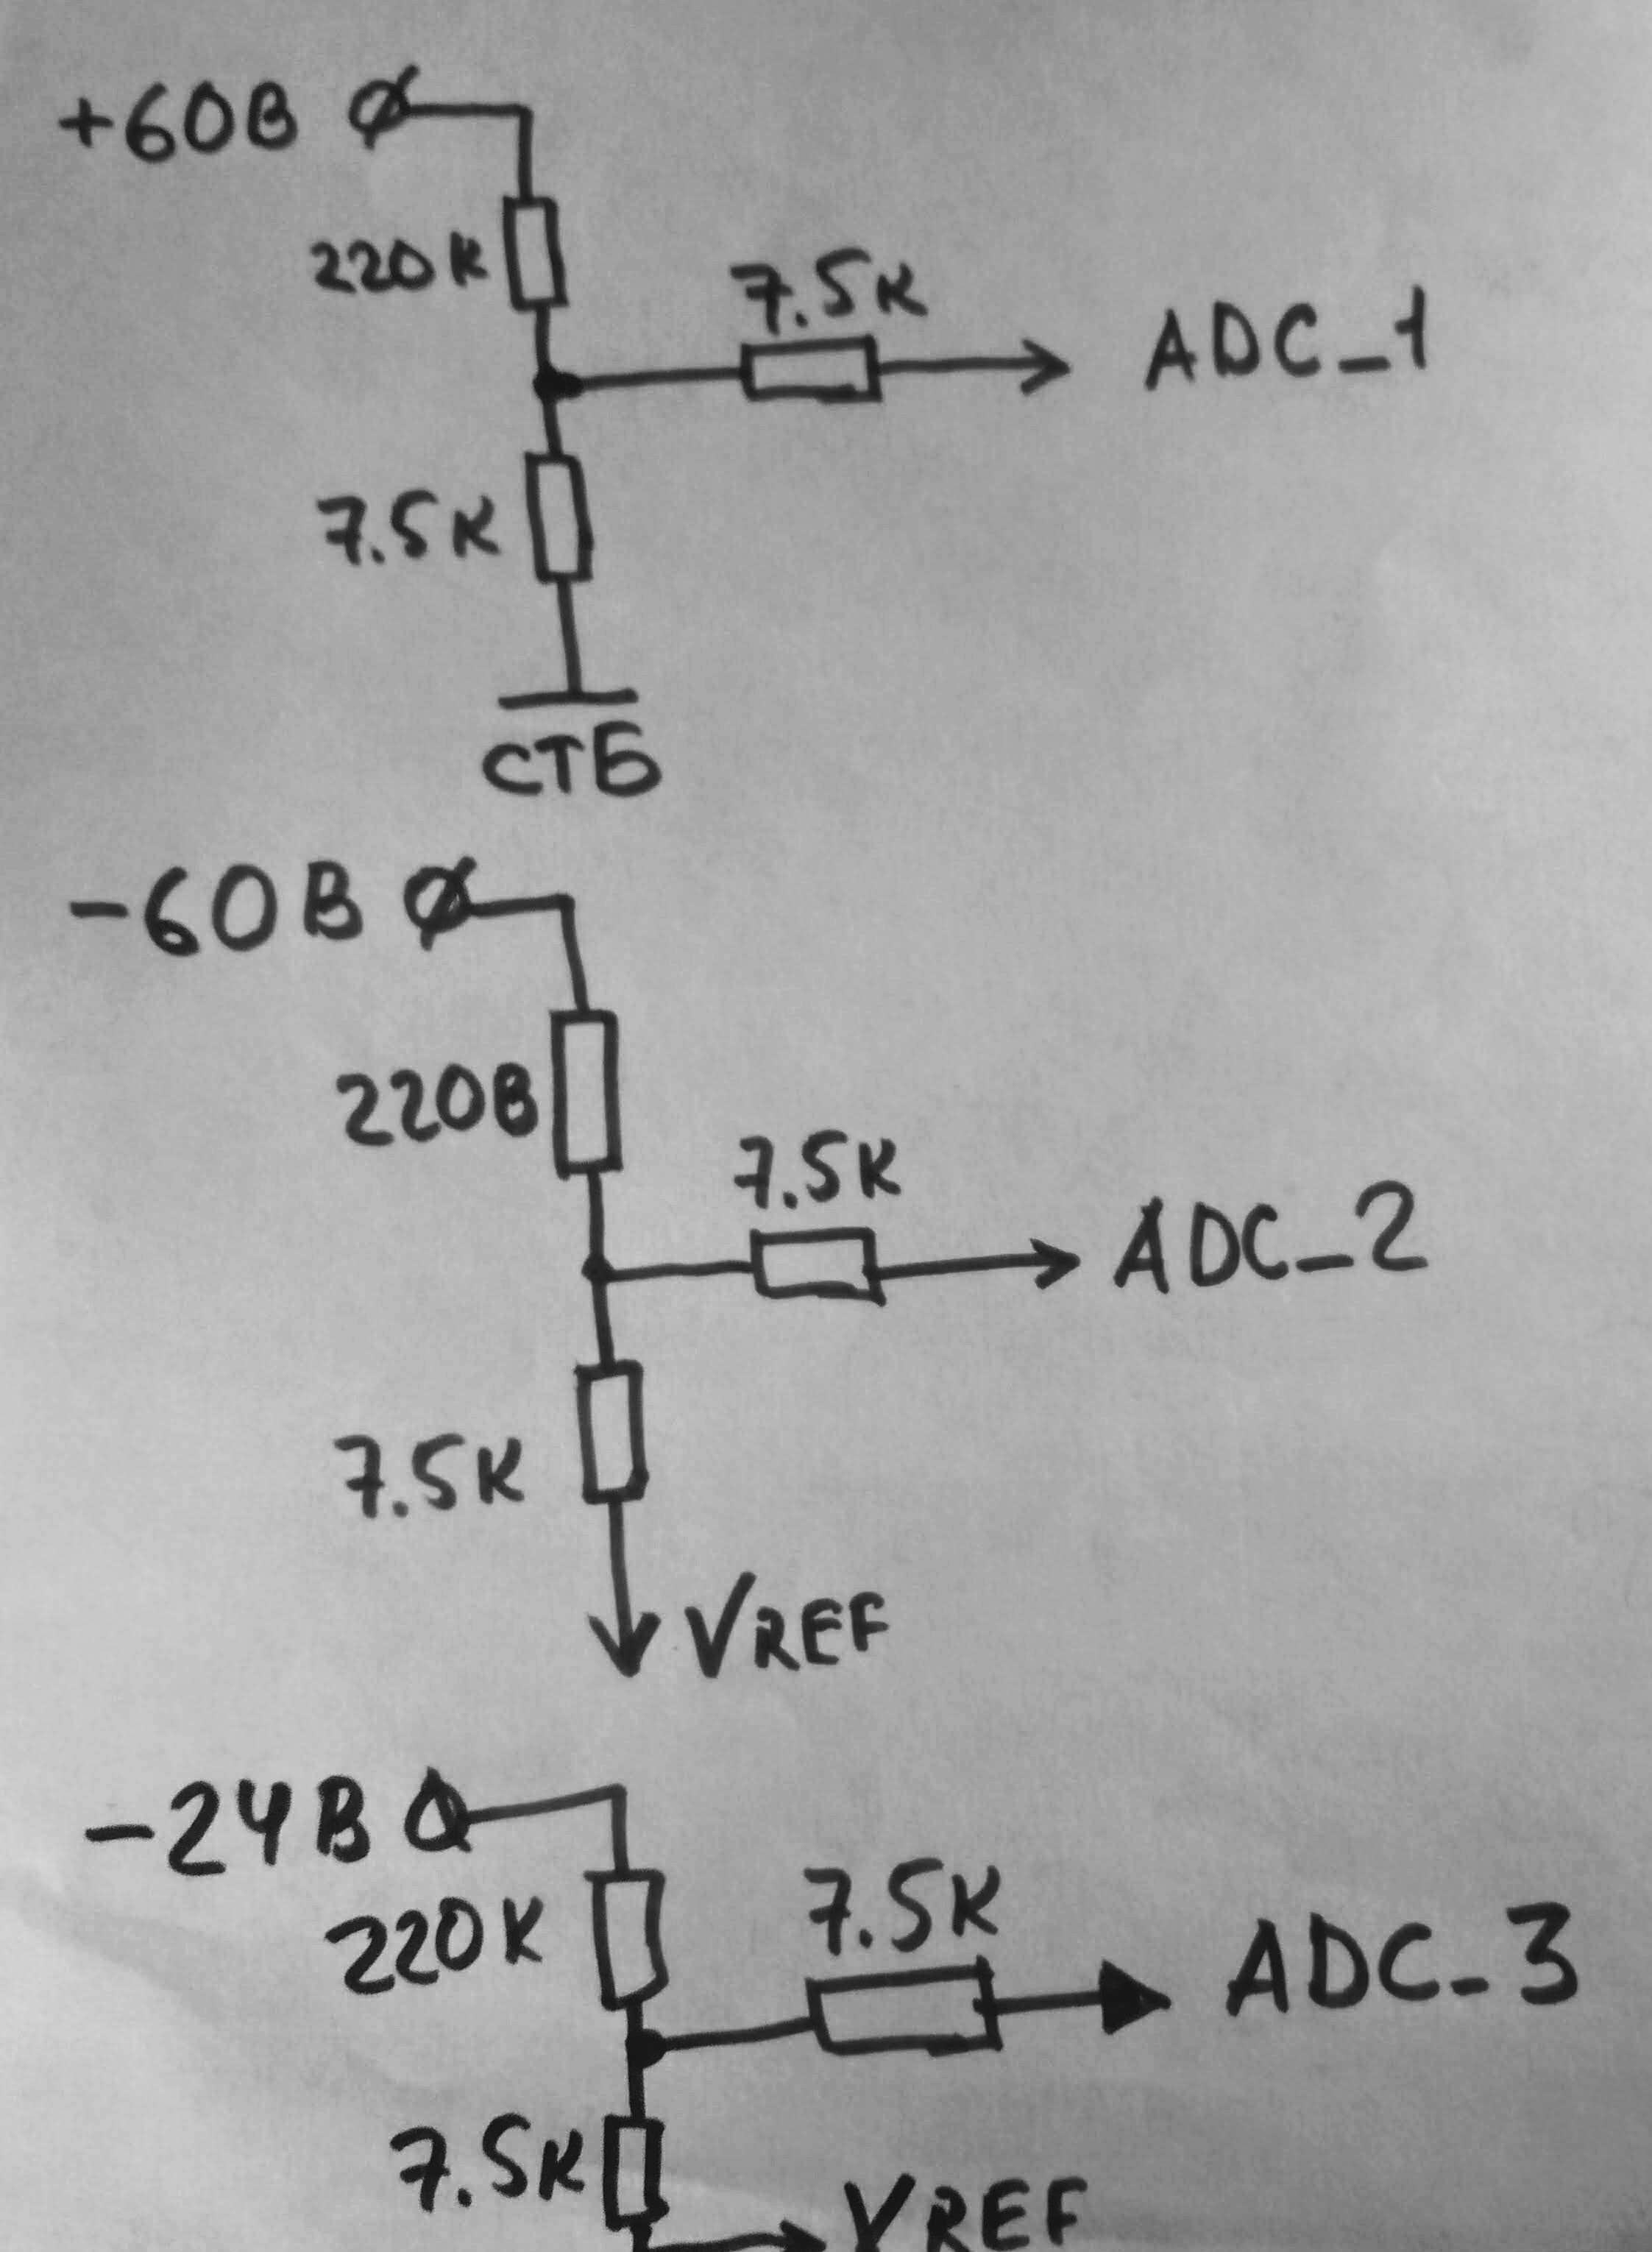 +60В
220К
7.5К
ADC_1
7.5К
СТБ
-60В
220В
7.5К
ADC_2
7.5К
VREF
-24В
220К
7.5К
ADC_3
7.5К
VREF